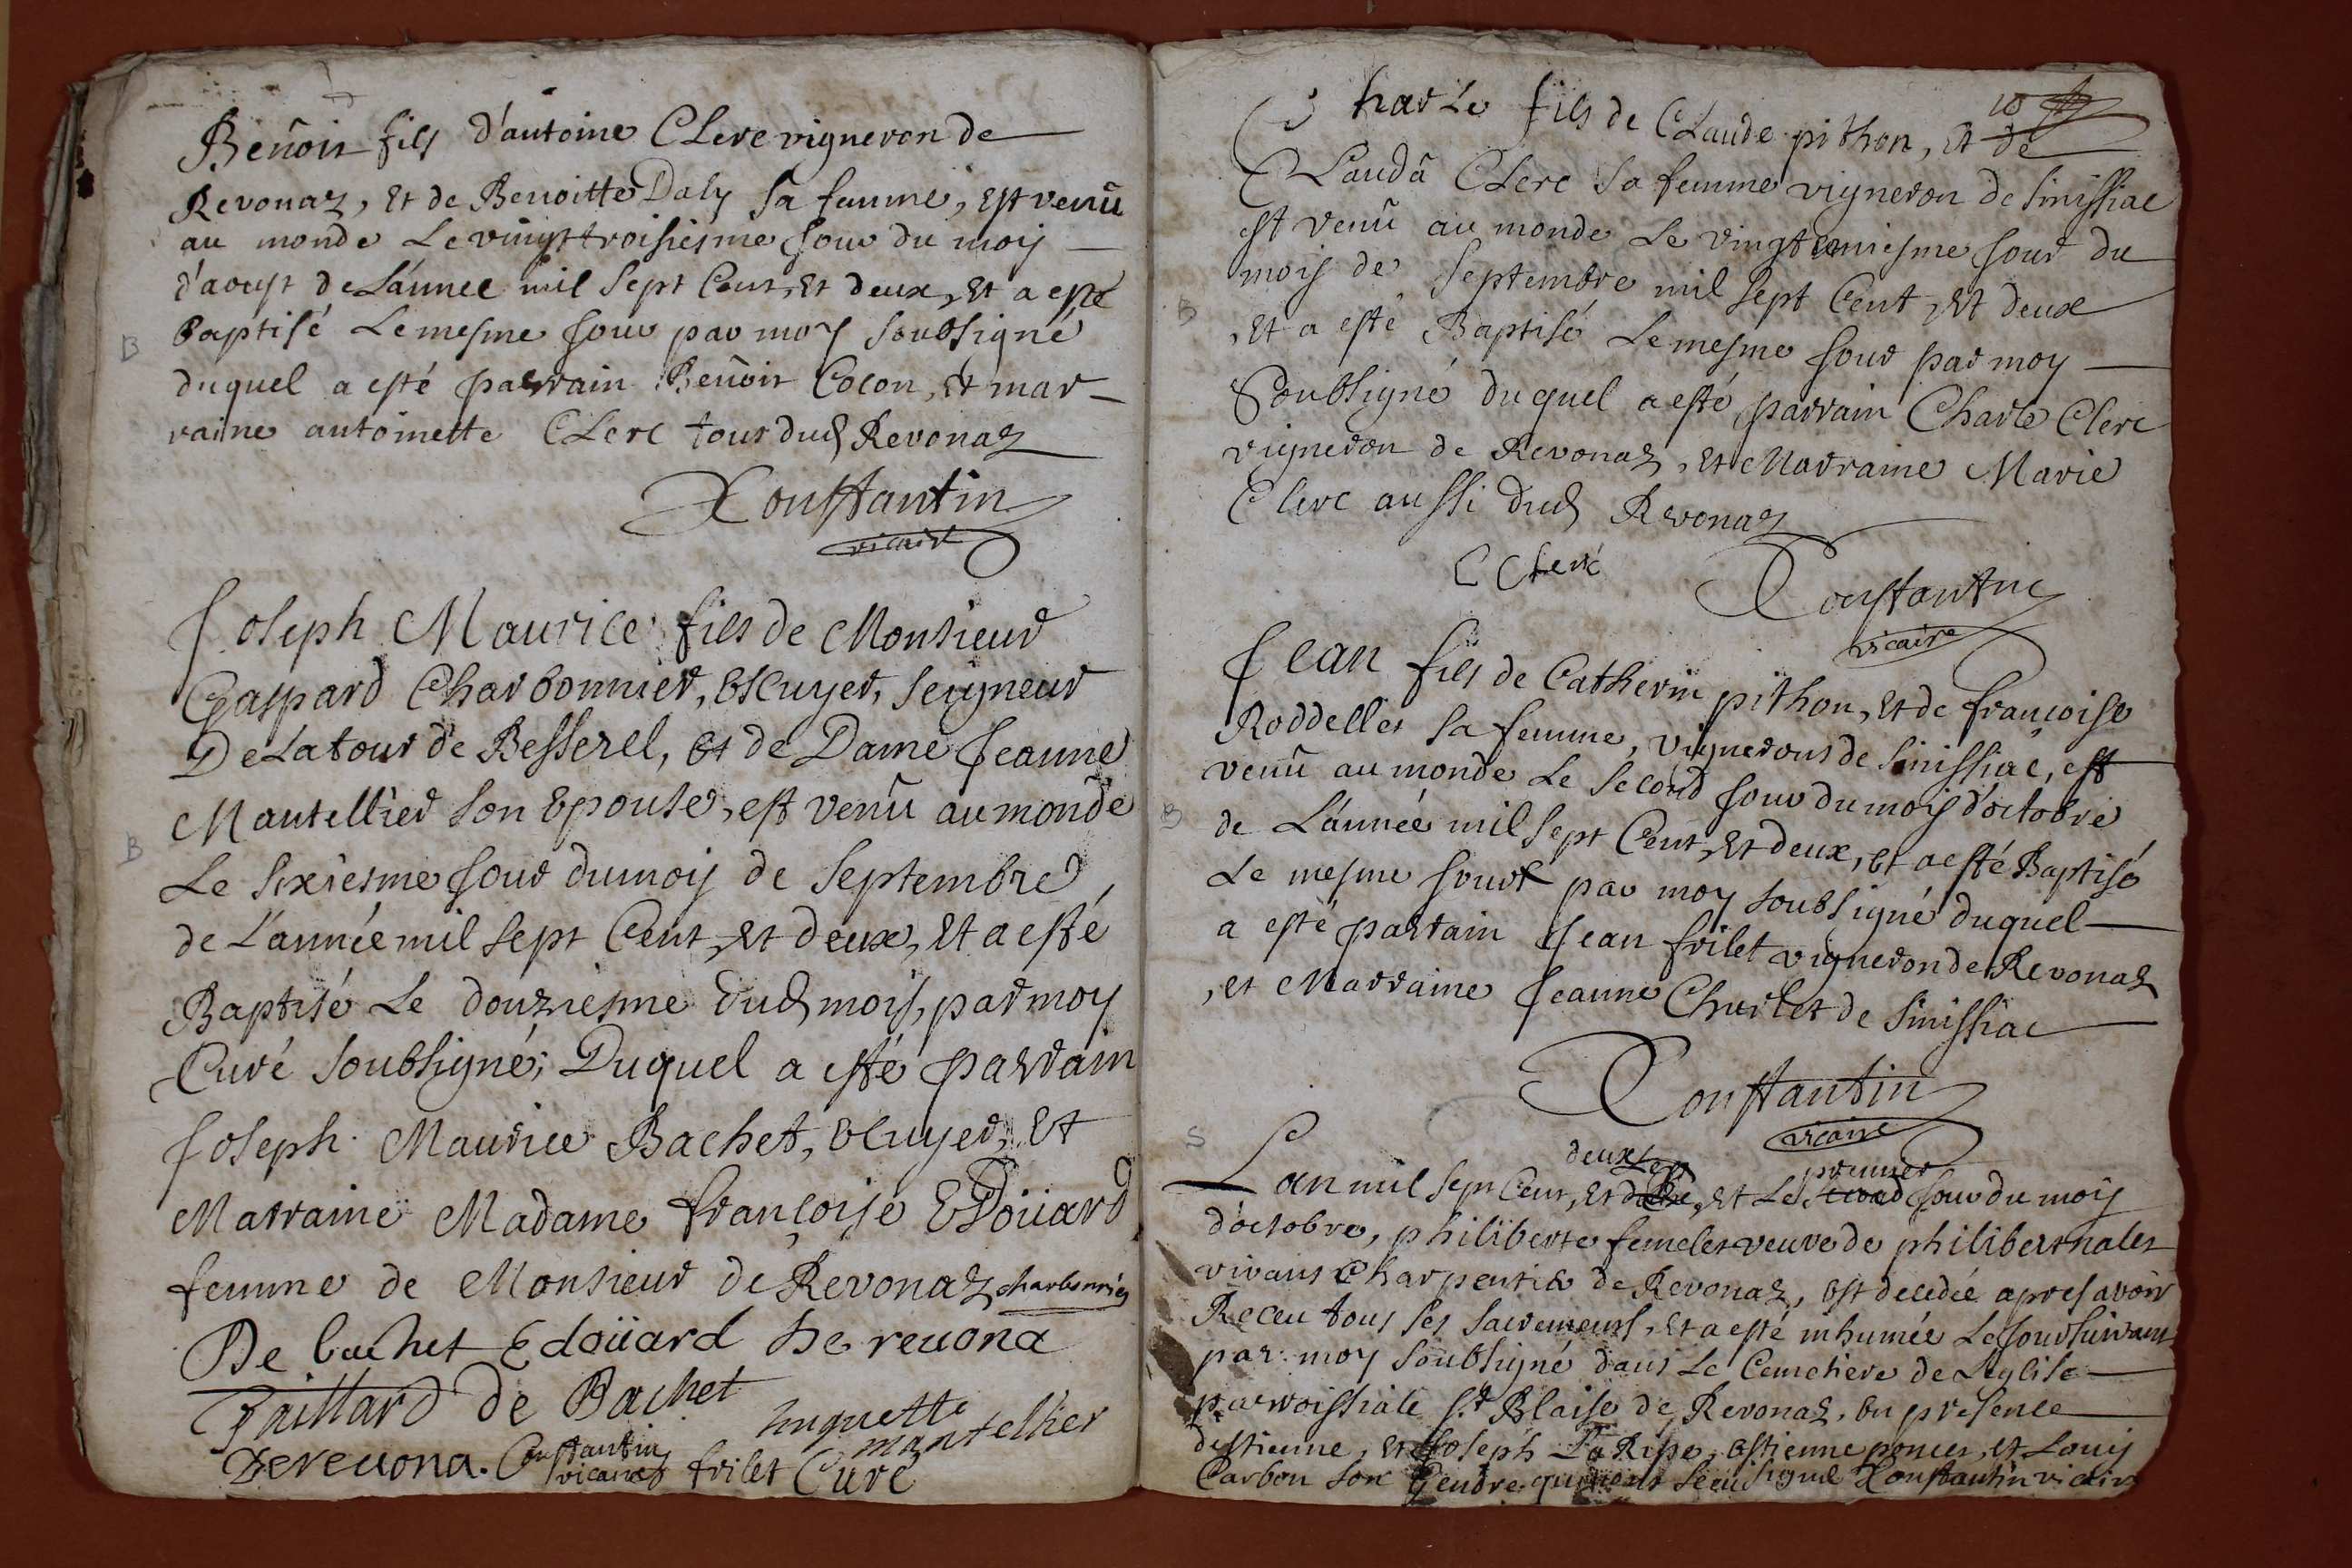 Benoit fils d'antoine CLerc vigneron de
Revonaz, Et de Benoitte Daly sa femme, est venû
au monde Le vingt troisiesme jour du mois
d'aoust de L'année mil sept Cent, Et deux, et a esté
baptisé Le mesme jour par moy soubsigné
duquel a esté parrain Benoit Colon, et mar-
raine antoinette CLerc tous dud Revonaz
Constantin
vicaire
Joseph Maurice fils de Monsieur
Gaspard Charbonnier, Escuyer, seigneur
De La tour de Besserel, et de Dame Jeanne
Mantellier son Epouse, est venû au monde
Le sixiesme jour du mois de Septembre,
de L'année mil sept Cent, et deux, Et a esté
Baptisé Le douziesme dud mois, par moy
Curé soubsigné; Duquel a esté parrain
Joseph Maurice Bachet, Ecuyer, Et
Marraine Madame françoise EDoüard
femme de Monsieur de Revonaz charbonnier
De bachet Edoüard De reuona
Gaillard de Bachet
huguette
mantellier
De reuona. Constantin
vicaire frilet Curé
B
B
10
Charle fils de CLaude pithon, et de
CLauda CLerc sa femme vigneron de Sinissiac
est venû au monde Le vingt uniesme jour du
mois de Septembre mil sept Cent, Et deux
, Et a esté Baptisé Le mesme jour par moy
Soubsigné duquel a esté parrain Charle Clerc
vigneron de Revonaz, et Marraine Marie
Clerc aussi dud Revonaz
C Clerc
Constantin
vicaire
Jean fils de Catherin pithon, Et de francoise
Roddelles sa femme, vignerons de Sinissiac, est
venû au monde Le second jour du mois d'octobre
de L'année mil sept Cent, Et deux, et a esté Baptisé
Le mesme jour par moy soubsigné duquel
a esté parrain Jean frilet vigneron de Revonaz
, et Marraine Jeanne Churlet de Sinissiac
Constantin
vicaire
B
B
S
deux premier
Lan mil sept Cent, Et et Le second jour du mois
d'octobre, philiberte femelet veuve de philibert nalet
vivant Charpentier de Revonaz, est decedée apres avoir
Receu tous ses sacremens, et a esté inhumée Le jour suivant
par moy soubsigné dans Le Cemetiere de L'eglise
parroissiale St Blaise de Revonaz, en presence
d'estienne, et Joseph La Ripe, estienne poncet, et Louis
Carbon son Gendre qui n'ont sceu signé Constantin vicaire